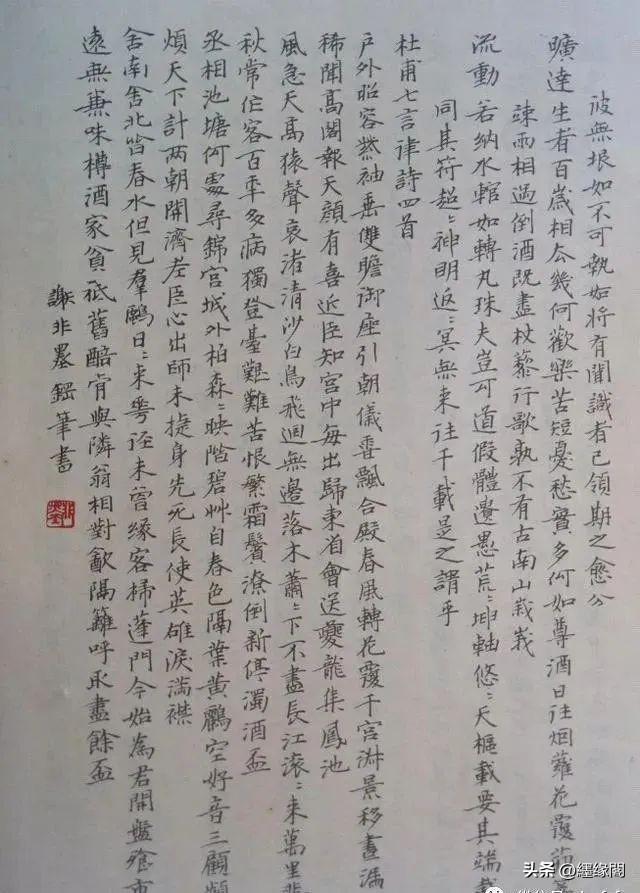 彼無垠如不可執如將有聞識者已領期之愈分
曠達生者百歲相去幾何歡樂苦短憂愁實多何如尊酒日往烟蘿花覆茆
疎雨相過倒酒既盡杖藜行歌孰不有古南山峩峩
流動若納水輨如轉丸珠夫豈可道假體遺愚荒〻坤軸悠〻天樞載要其端載
同其符超〻神明返〻冥無來往千載是之謂乎
杜甫七言律詩四首
戶外昭容紫袖垂雙瞻御座引朝儀香飄合殿春風轉花覆千官淑景移晝漏
稀聞高閣報天顏有喜近臣知宮中每出歸東省會送夔龍集鳳池
風急天高猿聲哀渚清沙白鳥飛迴無邊落木蕭〻下不盡長江滾〻來萬里悲
秋常作客百年多病獨登臺艱難苦恨繁霜鬢潦倒新停濁酒盃
丞相池塘何處尋錦官城外柏森〻映階碧艸自春色隔葉黃鸝空好音三顧頻
煩天下計兩朝開濟老臣心出師未捷身先死長使英雄淚滿襟
舍南舍北皆春水但見羣鷗日〻來花徑未曾緣客掃蓬門今始為君開盤飱市
遠無兼味樽酒家貧祗舊醅肯與隣翁相對飲隔籬呼取盡餘盃
謝非墨鋼筆書
头条 @纆缘閣